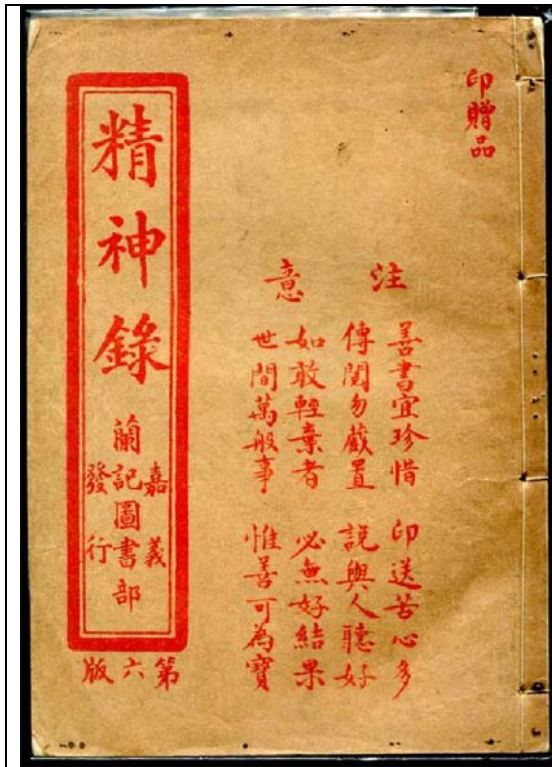 印贈品
注意
善書宜珍惜 印送苦心多
傳閱勿藏置 說與人聽好
如敢輕棄者 必無好結果
世間萬般事 惟善可為寶
精神錄
嘉義
蘭記圖書部
發行
第六版